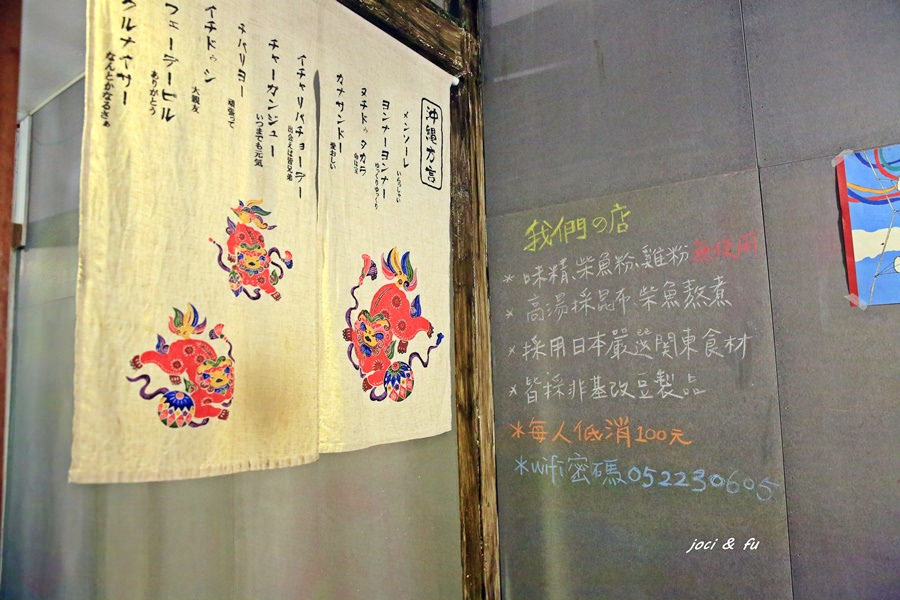 沖縄方言
メンソーレ
いらっしゃい
ヨンナーヨンナー
ゆっくりゆっくり
ヌチドゥタカラ
命は宝
カナサンドー
愛おしい
イチャリバチョーデー
出会えば皆兄弟
チャーガンジュー
いつまでも元気
チバリヨー
頑張って
イチドゥシ
大親友
フェーデービル
ありがとう
クルナイサー
なんとかなるさぁ
我們の店
*味精、柴魚粉、雞粉無使用
*高湯採昆布、柴魚熬煮
*採用日本嚴選関東食材
*皆採非基改豆製品
*每人低消100元
*wifi密碼052230605
joci & fu